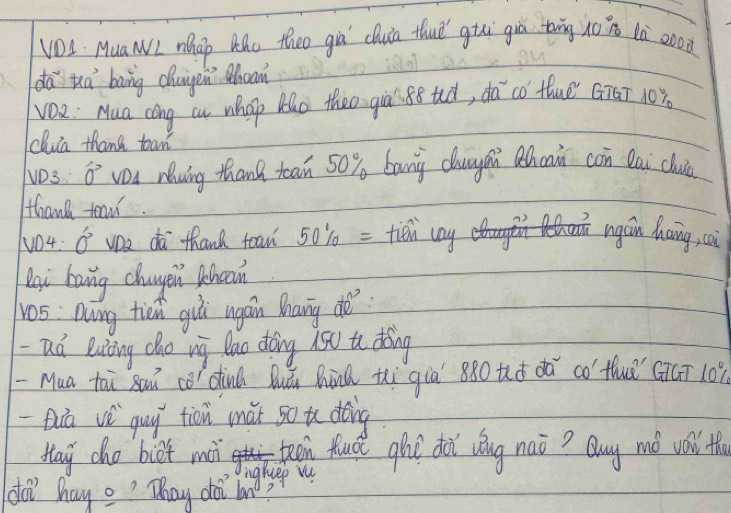 VD1: Mua NVL nhập kho theo giá chưa thuế gtri giá tăng 10% là 200đ
đã trả bằng chuyển khoản
VD2: Mua công cụ nhập kho theo giá 88 trđ, đã có thuế GTGT 10%
chưa thanh toán
VD3: Ở VD1 nhưng thanh toán 50% bằng chuyển khoản còn lại chưa
thanh toán.
VD4: Ở VD2 đã thanh toán 50% = tiền vay ngân hàng, còn
lại bằng chuyển khoản
VD5: Dùng tiền gửi ngân hàng để:
- Trả lương cho ng lao động 150 tr đồng
- Mua tài sản cố định hữu hình trị giá 880 trđ đã có thuế GTGT 10%
- Đưa về quỹ tiền mặt 50 tr đồng
Hãy cho biết mỗi nghiệp vụ trên thuộc qhệ đối ứng nào? Quy mô vốn thay
đổi hay o? Thay đổi ln?